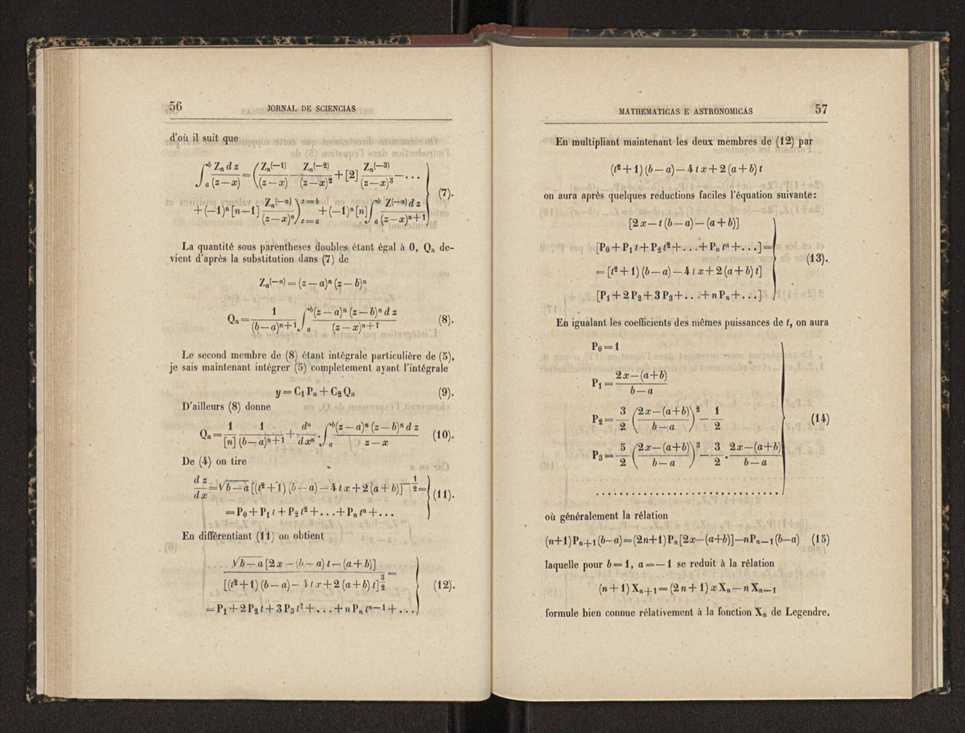 56 JORNAL DE SCIENCIAS
d'où il suit que
∫ₐᵇ Zₙ d z / (z − x) = ( Zₙ⁽⁻¹⁾ / (z − x) − Zₙ⁽⁻²⁾ / (z − x)² + [2] Zₙ⁽⁻³⁾ / (z − x)³ − ...
+ (−1)ⁿ [n−1] Zₙ⁽⁻ⁿ⁾ / (z − x)ⁿ ) z=b z=a + (−1)ⁿ [n] ∫ₐᵇ Z⁽⁻ⁿ⁾ d z / (z − x)ⁿ⁺¹ (7).
La quantité sous parenthèses doubles étant égal à 0, Qₙ de-
vient d'après la substitution dans (7) de
Zₙ⁽⁻ⁿ⁾ = (z − a)ⁿ (z − b)ⁿ
Qₙ = 1 / (b − a)ⁿ⁺¹ ∫ₐᵇ (z − a)ⁿ (z − b)ⁿ d z / (z − x)ⁿ⁺¹ (8).
Le second membre de (8) étant intégrale particulière de (5),
je sais maintenant intégrer (5) completement ayant l'intégrale
y = C₁ Pₙ + C₂ Qₙ (9).
D'ailleurs (8) donne
Qₙ = 1 / [n] 1 / (b − a)ⁿ⁺¹ + dⁿ / dxⁿ . ∫ₐᵇ (z − a)ⁿ (z − b)ⁿ d z / z − x (10).
De (4) on tire
d z / d x = √b − a [(t² + 1) (b − a) − 4 t x + 2 (a + b) t]^−1/2 =
= P₀ + P₁ t + P₂ t² + ... + Pₙ tⁿ + ... (11).
En differentiant (11) on obtient
√b − a [2 x − (b − a) t − (a + b)] / [(t² + 1) (b − a) − 4 t x + 2 (a + b) t]^3/2 =
= P₁ + 2 P₂ t + 3 P₃ t² + ... + n Pₙ tⁿ⁻¹ + ... (12).
MATHEMATICAS E ASTRONOMICAS 57
En multipliant maintenant les deux membres de (12) par
(t² + 1) (b − a) − 4 t x + 2 (a + b) t
on aura après quelques reductions faciles l'équation suivante:
[2 x − t (b − a) − (a + b)]
[P₀ + P₁ t + P₂ t² + ... + Pₙ tⁿ + ...] =
= [t² + 1) (b − a) − 4 t x + 2 (a + b) t] (13).
[P₁ + 2 P₂ + 3 P₃ + ... + n Pₙ + ...]
En igualant les coefficients des mêmes puissances de t, on aura
P₀ = 1
P₁ = 2 x − (a + b) / b − a
P₂ = 3 / 2 (2 x − (a + b) / b − a)² − 1 / 2 (14)
P₃ = 5 / 2 (2 x − (a + b) / b − a)³ − 3 / 2 . 2 x − (a + b) / b − a
................................
où généralement la rélation
(n+1) Pₙ₊₁ (b−a) = (2n+1) Pₙ [2x−(a+b)] − nPₙ₋₁ (b−a) (15)
laquelle pour b = 1, a = − 1 se reduit à la rélation
(n + 1) Xₙ₊₁ = (2 n + 1) x Xₙ − n Xₙ₋₁
formule bien connue rélativement à la fonction Xₙ de Legendre.